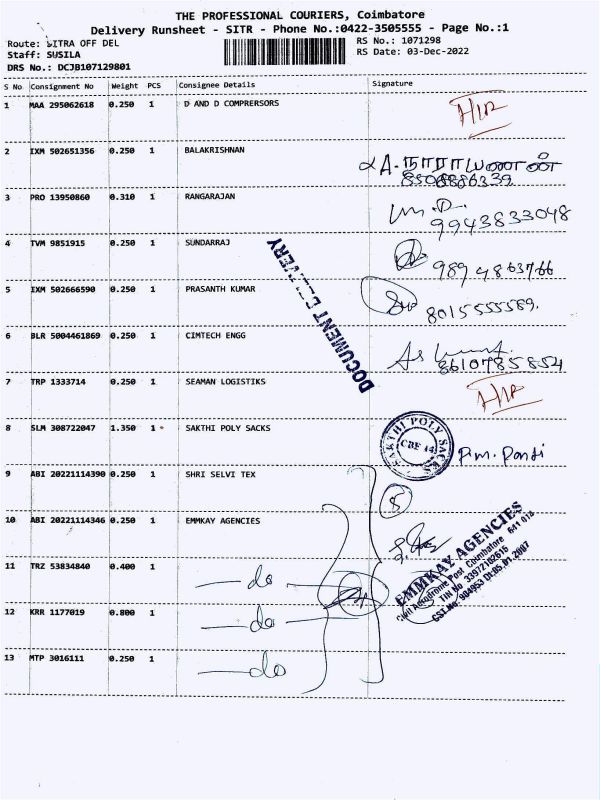 THE PROFESSIONAL COURIERS, Coimbatore
Delivery Runsheet - SITR - Phone No.:0422-3505555 - Page No.:1
Route: SITRA OFF DEL RS No.: 1071298
Staff: SUSILA RS Date: 03-Dec-2022
DRS No.: DCJB107129801
S No Consignment No Weight PCS Consignee Details Signature
1 MAA 295062618 0.250 1 D AND D COMPRERSORS
2 IXM 502651356 0.250 1 BALAKRISHNAN A. நாராயணன்
3 PRO 13950860 0.310 1 RANGARAJAN
9943833048
4 TVM 9851915 0.250 1 SUNDARRAJ
9894863766
5 IXM 502666590 0.250 1 PRASANTH KUMAR
8015555589.
DOCUMENT DELIVERY
6 BLR 5004461869 0.250 1 CIMTECH ENGG
8610785854
7 TRP 1333714 0.250 1 SEAMAN LOGISTIKS
8 SLM 308722047 1.350 1 SAKTHI POLY SACKS
SAKTHI POLY SACKS
CBE 14
9 ABI 20221114390 0.250 1 SHRI SELVI TEX
10 ABI 20221114346 0.250 1 EMMKAY AGENCIES
EMMKAY AGENCIES
Civil Aerodrome Post Coimbatore 641 014
TIN No 33972182615
CST.No. 904953 Dt.05.01.2007
11 TRZ 53834840 0.400 1 -do-
12 KRR 1177019 0.800 1 -do-
13 MTP 3016111 0.250 1 -do